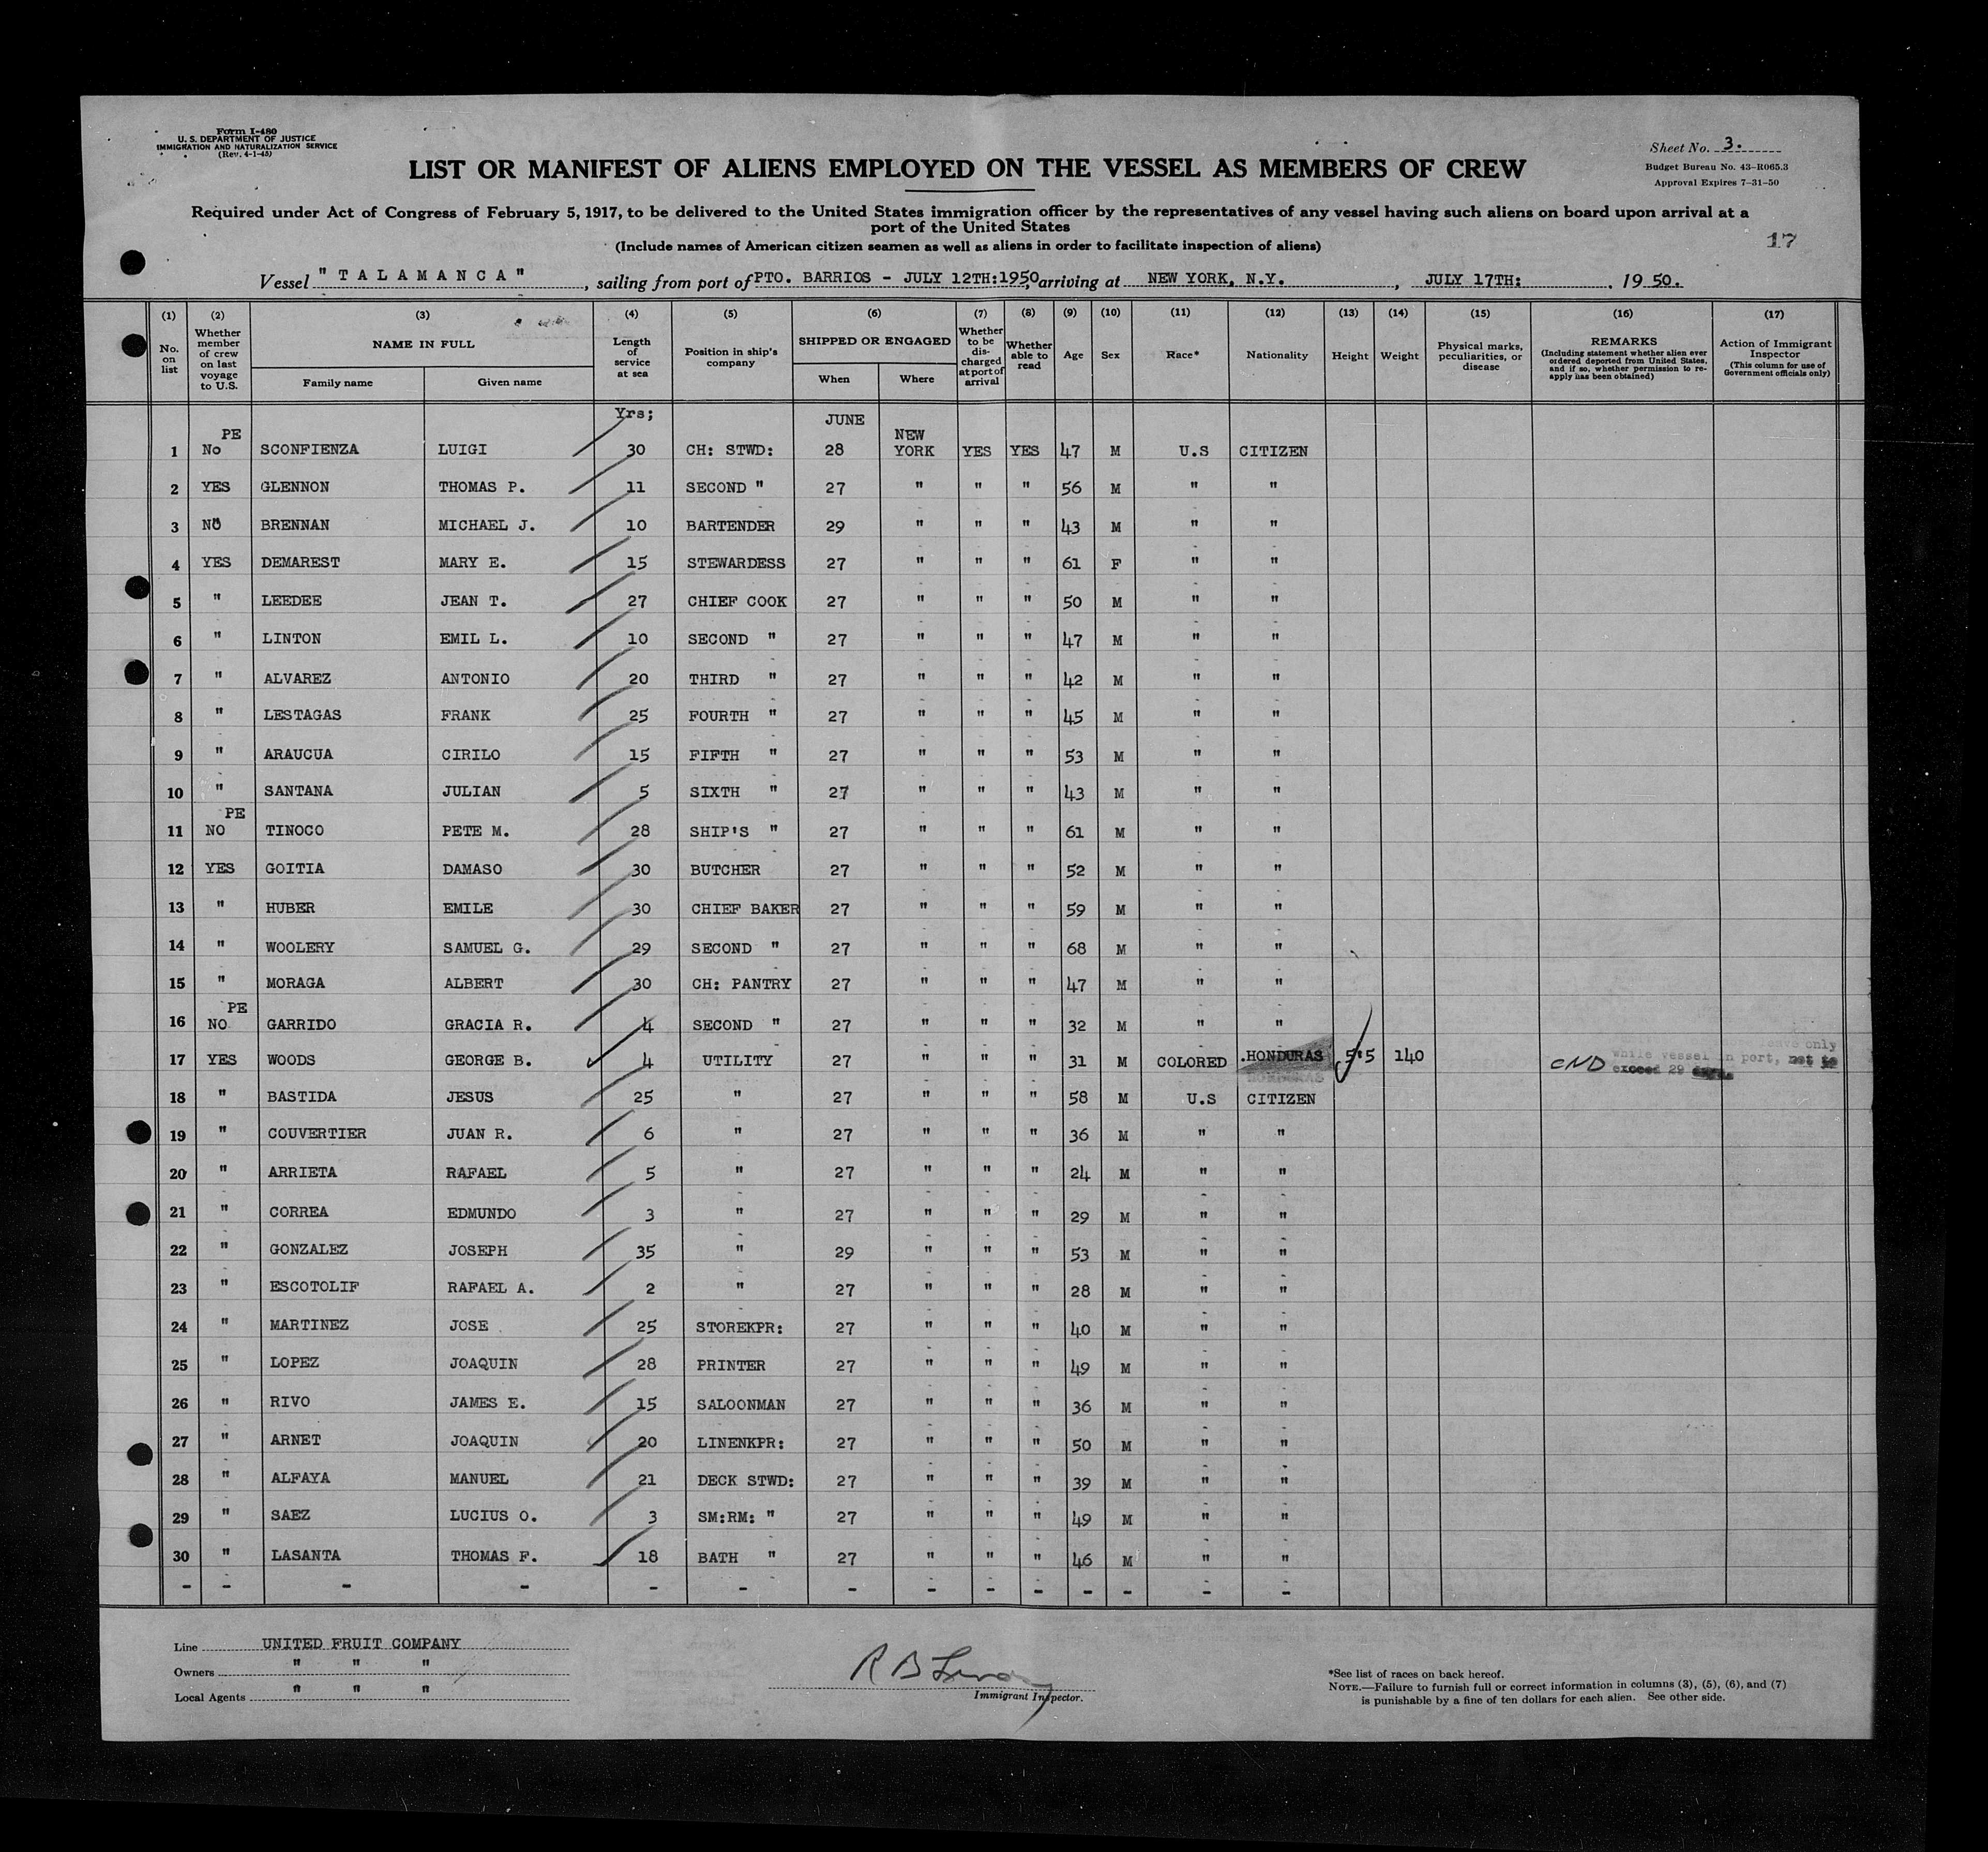 Form I-480
U. S. DEPARTMENT OF JUSTICE
IMMIGRATION AND NATURALIZATION SERVICE
(Rev. 4-1-45)
Sheet No. 3.
Budget Bureau No. 43-R065.3
Approval Expires 7-31-50
LIST OR MANIFEST OF ALIENS EMPLOYED ON THE VESSEL AS MEMBERS OF CREW
Required under Act of Congress of February 5, 1917, to be delivered to the United States immigration officer by the representatives of any vessel having such aliens on board upon arrival at a
port of the United States
(Include names of American citizen seamen as well as aliens in order to facilitate inspection of aliens)
17
Vessel "TALAMANCA", sailing from port of PTO. BARRIOS - JULY 12TH:1950, arriving at NEW YORK, N.Y., JULY 17TH:, 1950.
(1) No. on list (2) Whether member of crew on last voyage to U.S. (3) NAME IN FULL Family name Given name (4) Length of service at sea (5) Position in ship's company (6) SHIPPED OR ENGAGED When Where (7) Whether to be discharged at port of arrival (8) Whether able to read (9) Age (10) Sex (11) Race* (12) Nationality (13) Height (14) Weight (15) Physical marks, peculiarities, or disease (16) REMARKS (Including statement whether alien ever ordered deported from United States, and if so, whether permission to re-apply has been obtained) (17) Action of Immigrant Inspector (This column for use of Government officials only)
Yrs; JUNE
1 PE No SCONFIENZA LUIGI 30 CH: STWD: 28 NEW YORK YES YES 47 M U.S CITIZEN
2 YES GLENNON THOMAS P. 11 SECOND " 27 " " " 56 M " "
3 NO BRENNAN MICHAEL J. 10 BARTENDER 29 " " " 43 M " "
4 YES DEMAREST MARY E. 15 STEWARDESS 27 " " " 61 F " "
5 " LEEDEE JEAN T. 27 CHIEF COOK 27 " " " 50 M " "
6 " LINTON EMIL L. 10 SECOND " 27 " " " 47 M " "
7 " ALVAREZ ANTONIO 20 THIRD " 27 " " " 42 M " "
8 " LESTAGAS FRANK 25 FOURTH " 27 " " " 45 M " "
9 " ARAUCUA CIRILO 15 FIFTH " 27 " " " 53 M " "
10 " SANTANA JULIAN 5 SIXTH " 27 " " " 43 M " "
11 PE NO TINOCO PETE M. 28 SHIP'S " 27 " " " 61 M " "
12 YES GOITIA DAMASO 30 BUTCHER 27 " " " 52 M " "
13 " HUBER EMILE 30 CHIEF BAKER 27 " " " 59 M " "
14 " WOOLERY SAMUEL G. 29 SECOND " 27 " " " 68 M " "
15 " MORAGA ALBERT 30 CH: PANTRY 27 " " " 47 M " "
16 PE NO GARRIDO GRACIA R. 4 SECOND " 27 " " " 32 M " "
17 YES WOODS GEORGE B. 4 UTILITY 27 " " " 31 M COLORED HONDURAS 5'5 140 CND while vessel in port, not to exceed 29
18 " BASTIDA JESUS 25 " 27 " " " 58 M U.S CITIZEN
19 " COUVERTIER JUAN R. 6 " 27 " " " 36 M " "
20 " ARRIETA RAFAEL 5 " 27 " " " 24 M " "
21 " CORREA EDMUNDO 3 " 27 " " " 29 M " "
22 " GONZALEZ JOSEPH 35 " 29 " " " 53 M " "
23 " ESCOTOLIF RAFAEL A. 2 " 27 " " " 28 M " "
24 " MARTINEZ JOSE 25 STOREKPR: 27 " " " 40 M " "
25 " LOPEZ JOAQUIN 28 PRINTER 27 " " " 49 M " "
26 " RIVO JAMES E. 15 SALOONMAN 27 " " " 36 M " "
27 " ARNET JOAQUIN 20 LINENKPR: 27 " " " 50 M " "
28 " ALFAYA MANUEL 21 DECK STWD: 27 " " " 39 M " "
29 " SAEZ LUCIUS O. 3 SM:RM: " 27 " " " 49 M " "
30 " LASANTA THOMAS F. 18 BATH " 27 " " " 46 M " "
- - - - - - - - - - - - -
Line UNITED FRUIT COMPANY
Owners " " "
Local Agents " " "
Immigrant Inspector.
*See list of races on back hereof.
NOTE.—Failure to furnish full or correct information in columns (3), (5), (6), and (7)
is punishable by a fine of ten dollars for each alien. See other side.